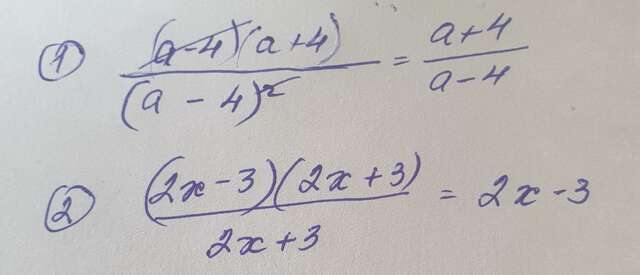 ① (a-4)(a+4) / (a-4)² = a+4 / a-4
② (2x-3)(2x+3) / 2x+3 = 2x-3